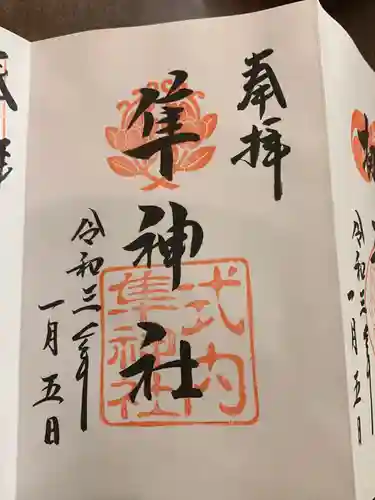 奉拝
隼神社
式内
隼神社
令和三年
一月五日
月五日